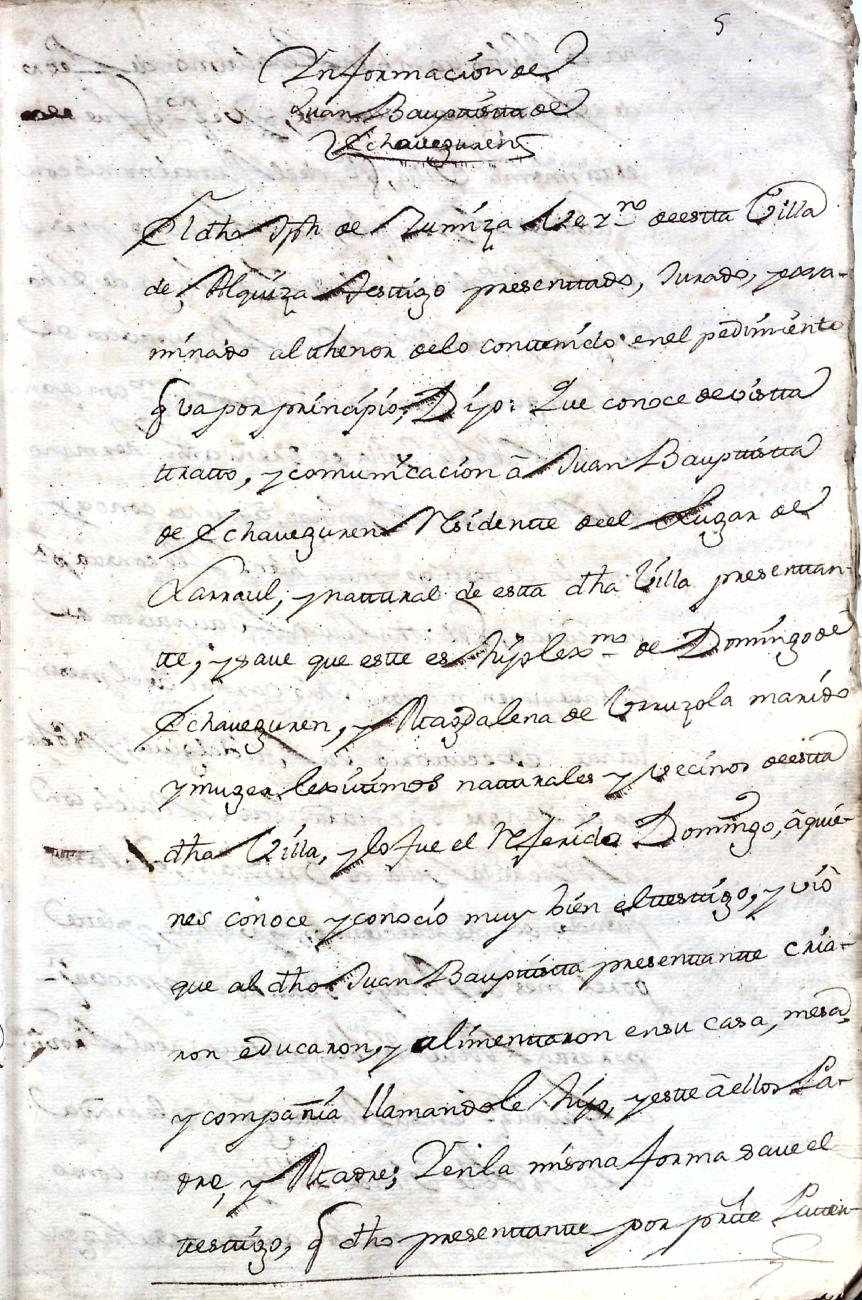 5
Ynformacion de
Juan Bauptistta de
Echaveguren
El dho Jph de Zuniza Vezno deestta Villa
de Alquiza testtigo presenttado, Jurado, y exsa-
minado al thenor delo conttenido en el pedimiento
q va por principio, Dijo: Que conoce de vistta
tratto, y comunicacion â Juan Bauptistta
de Echaveguren Residentte de el Lugar de
Larraul, y nattural de estta dha Villa presenttan-
tte, y save que estte es hijo lexmo de Domingo de
Echaveguren, y Magdalena de Urruzola marido
y muger lexitimos natturales y vecinos de estta
dha Villa, y lo fue el Referido Domingo, â quie-
nes conoce y conocio muy bien el testtigo, y viô
que al dho Juan Bauptistta presenttantte cria-
ron educaron, y alimenttaron en su casa, mesa,
y compañia llamandole hijo, y estte â ellos Pa-
dre, y Madre; Y en la misma forma save el
testtigo, q dho presenttantte por prtte Patter-